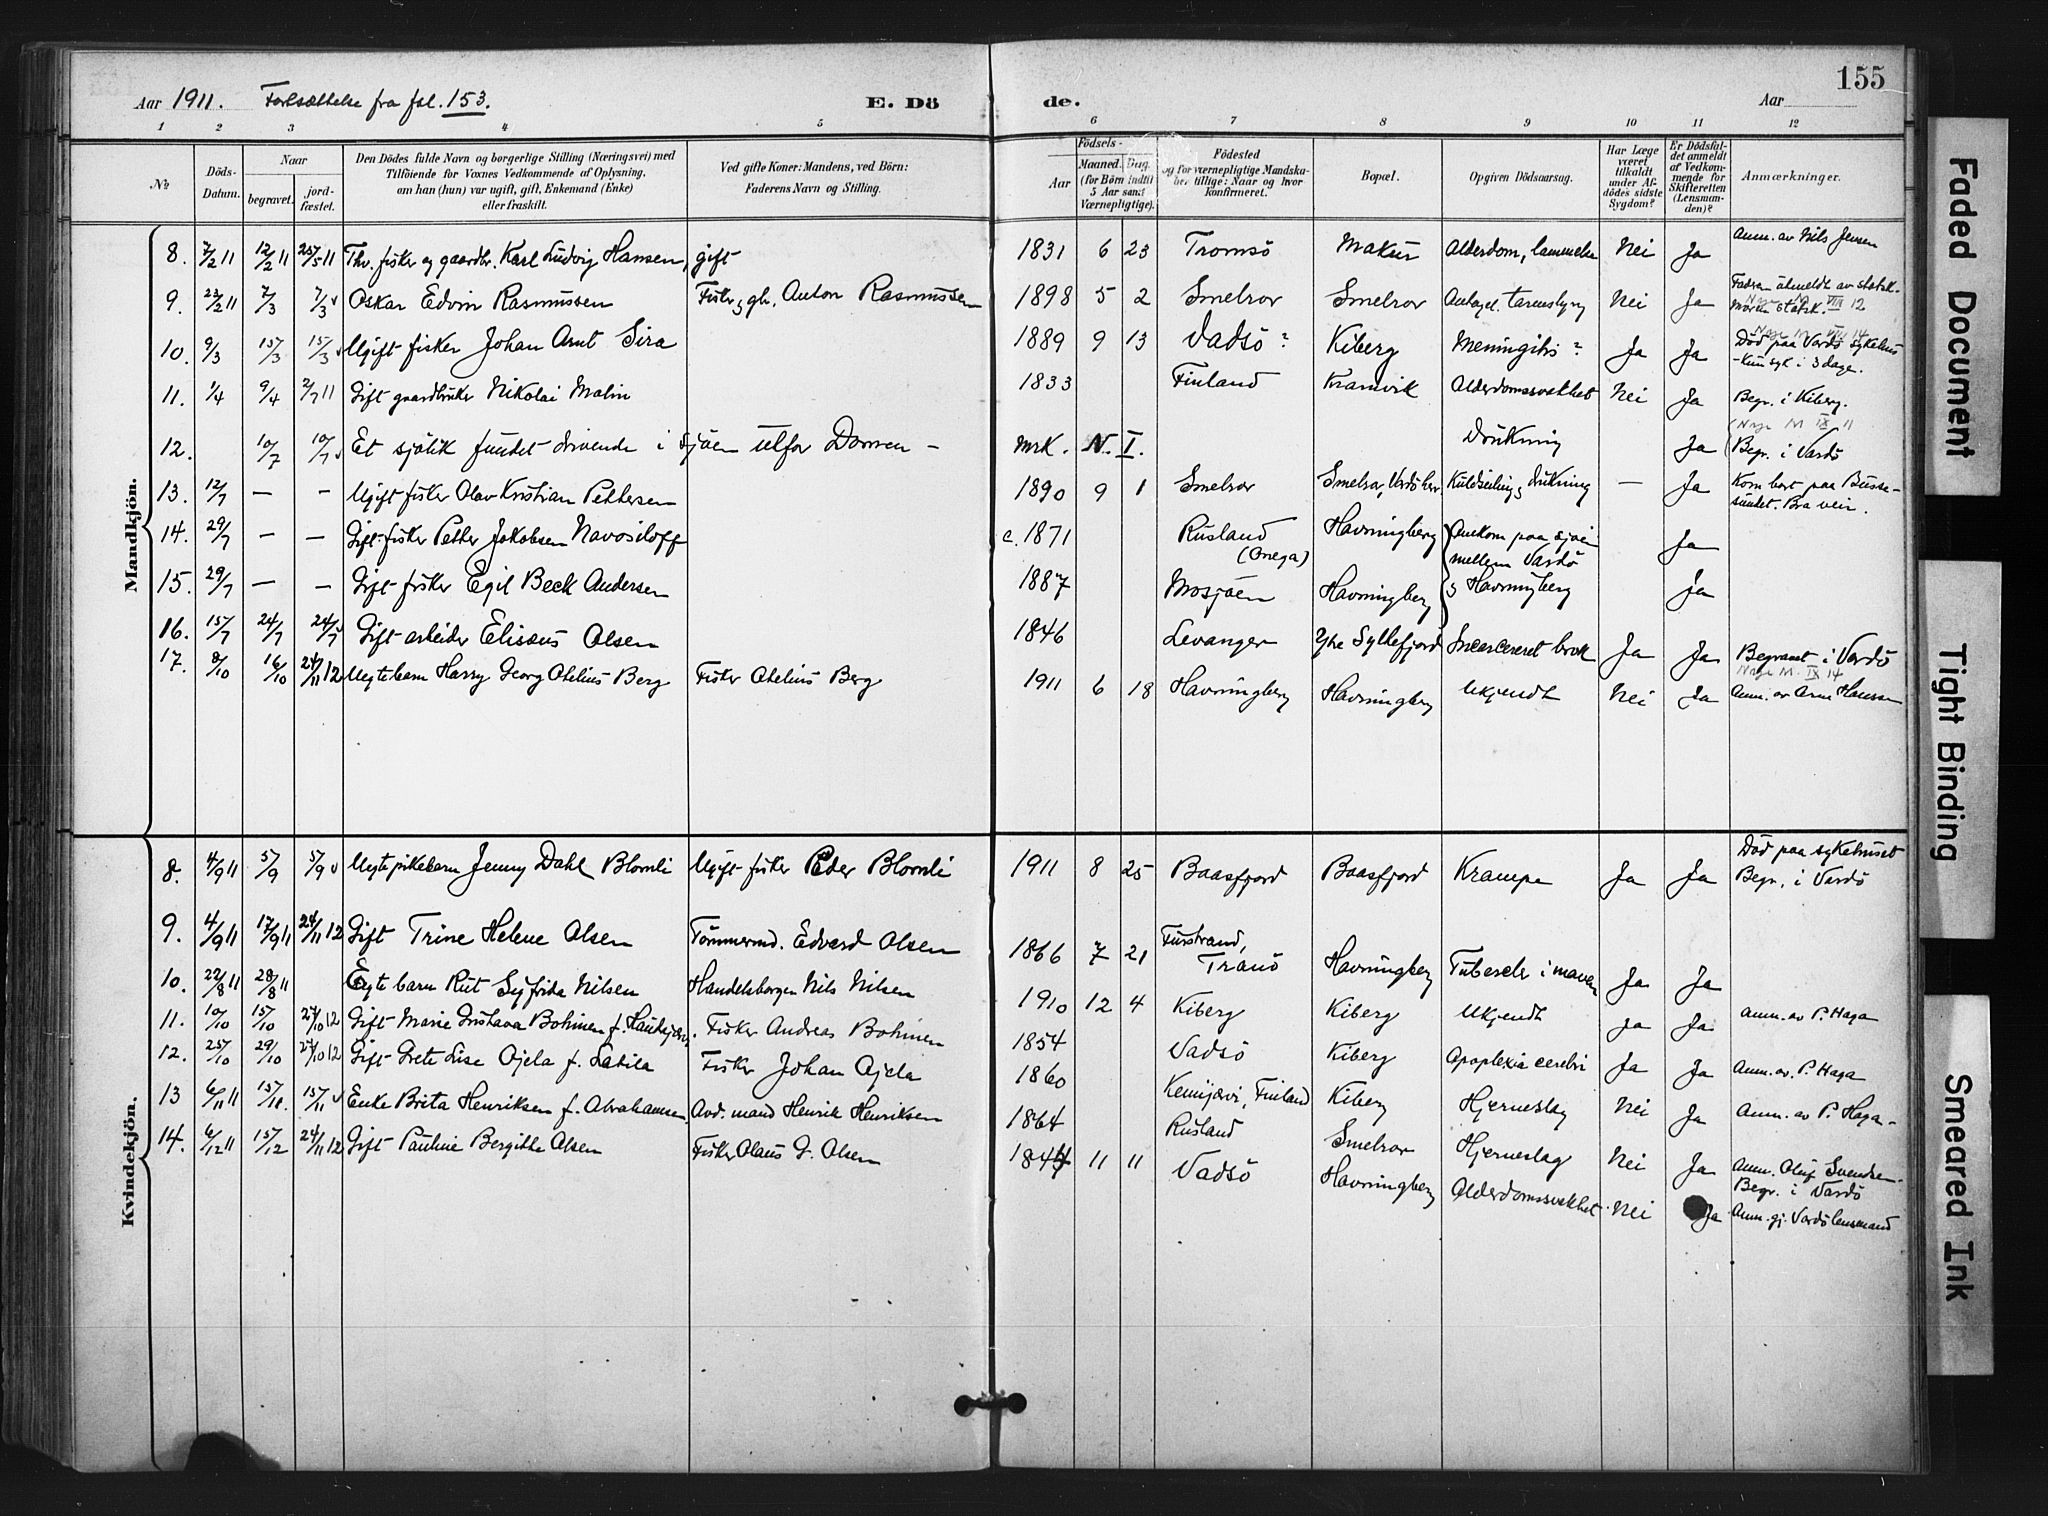 Aar 1911. Fortsættelse fra fol. 153. E. Dö de. Aar 155
1 2 3 4 5 6 7 8 9 10 11 12
№
Döds-Datum.
Naar
begravet.
jord-fæstet.
Den Dödes fulde Navn og borgerlige Stilling (Næringsvei) med
Tilföiende for Voxnes Vedkommende af Oplysning,
om han (hun) var ugift, gift, Enkemand (Enke)
eller fraskilt.
Ved gifte Koner: Mandens, ved Börn:
Faderens Navn og Stilling.
Födsels-
Aar
Maaned. Dag.
(for Börn indtil
5 Aar samt
Værnepligtige).
Födested
og for værnepligtige Mandska-
ber tillige: Naar og hvor
konfirmeret.
Bopæl.
Opgiven Dödsaarsag.
Har Læge
været
tilkaldt
under Af-
dödes sidste
Sygdom?
Er Dödsfal-
det anmeldt
af Vedkom-
mende for
Skifteretten
(Lensman-
den)?
Anmærkninger.
Mandkjön.
8. 7/2 11 12/2 11 25/5 11 Fhv. fisker og gaardbr. Karl Ludvig Hansen, gift 1831 6 23 Tromsö Makur Alderdom, lammelse Nei Ja Anm. av Nils Jensen
9. 23/2 11 7/3 7/3 Oskar Edvin Rasmussen Fisker, gbr. Anton Rasmussen 1898 5 2 Smelror Smelror Nei Ja Faderen utmeldt av statsk.
Moren statsk.
10. 9/3 15/3 15/3 Ugift fisker Johan Arnt Sira 1889 9 13 Vadsö? Kiberg Meningitis? Ja Ja Död paa Vardö sykehus
- Kun syk i 3 dage.
11. 1/4 9/4 2/7 11 Gift gaardbruker Nikolai Malin 1833 Finland Kramvik Alderdomssvakhet Nei Ja Begr. i Kiberg.
12. 10/7 10/7 Et sjölik fundet drivende i sjöen utfor Domen - Mrk. N. I. Drukning Ja Begr. i Vardö
13. 12/7 — - Ugift fisker Olav Kristian Pettersen 1890 9 1 Smelror Smelror, Vardö herr Kuldseiling, drukning — Ja Kom bort paa Busse-
sundet. Bra veir.
14. 29/7 — — Gift fisker Petter Jakobsen Navosiloff c. 1871 Rusland
(Onega) Havningberg Omkom paa sjöen
mellem Vardö
& Havningberg Ja
15. 29/7 — - Gift fisker Egil Beck Andersen 1887 Mosjöen Havningberg Ja
16. 15/7 24/7 24/7 Gift arbeider Elisæus Olsen 1846 Levanger Ytre Syltefjord Incarcereret brok Ja Ja Begravet i Vardö
17. 8/10 16/10 24/11 12 Uegte barn Harry Georg Otelius Berg Fisker Otelius Berg 1911 6 18 Havningberg Havningberg Ukjendt Nei Ja Anm. av Arne Hansen
Kvindekjön.
8. 4/9 11 5/9 5/9 Uegte pikebarn Jenny Dahl Blomli Ugift fisker Peder Blomli 1911 8 25 Baasfjord Baasfjord Krampe Ja Ja Död paa sykehuset
Begr. i Vardö
9. 4/9 11 17/9 11 24/11 12 Gift Trine Helene Olsen Tömmermd. Edvard Olsen 1866 7 21 Furstrand,
Tranö Havningberg Tubercler i maven Ja Ja
10. 22/8 11 28/8 11 Egte barn Rut Syfrida Nilsen Handelsborger Nils Nilsen 1910 12 4 Kiberg Kiberg Ukjendt Ja Ja Anm. av P. Haga
11. 10/10 15/10 24/10 12 Gift Marie Gustava Bohinen f. Fisker Andreas Bohinen 1854 Vadsö Kiberg Apoplexia cerebri Ja Ja Anm. av. P. Haga
12. 25/10 29/10 24/10 12 Gift Grete Lise Ojela f. Latila Fisker Johan Ojela 1860 Kemijærvi, Finland Kiberg Hjerneslag Nei Ja Anm. av P. Haga -
13 6/11 11 15/11. 15/11 Enke Brita Henriksen f. Abrahamsen Avd. mand Henrik Henriksen 1864 Rusland Smelror Hjerneslag Nei Ja Anm. Oluf Svendsen.
Begr. i Vardö
14. 6/12 11 15/12 24/11 12 Gift Pauline Bergithe Olsen Fisker Olaus G. Olsen 1844 11 11 Vadsö Havningberg Alderdomssvakhet Nei Ja Anm. gj. Vardö lensmand
Faded Document
Tight Binding
Smeared Ink